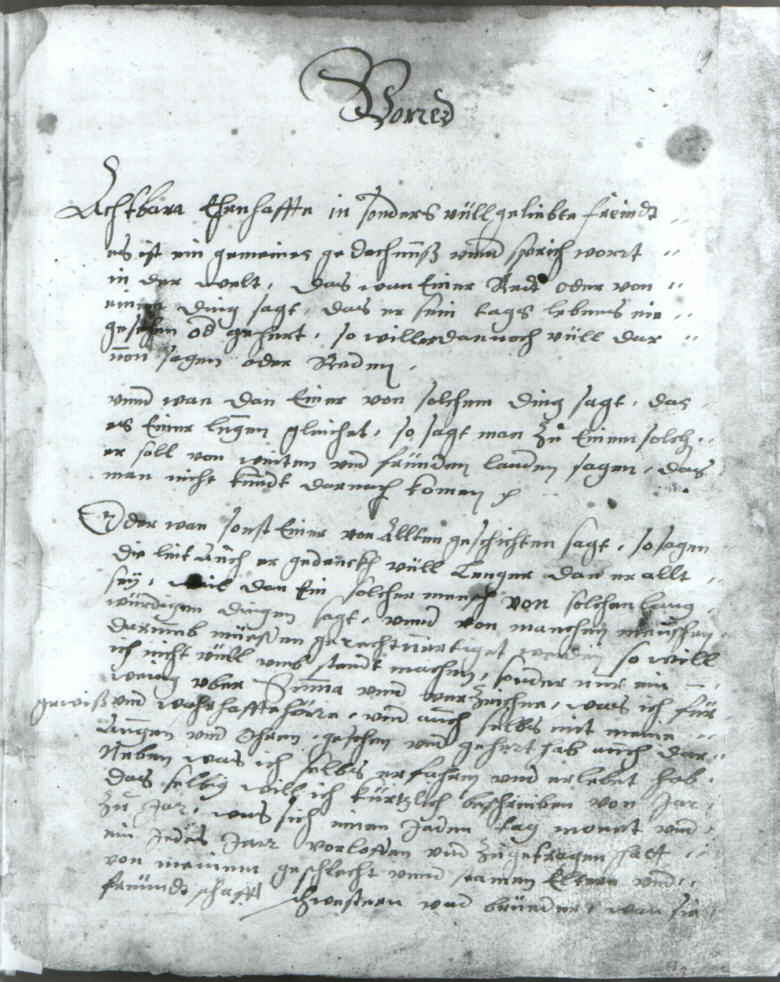 Vorred
Achtbara Ehrenhaffte in sonders vüll geliebte freindt
es ist ein gemeines gedechnuß vnnd sprich wortt
in der welt, das wan Einer Redt oder von
einem Ding sagt, das er sein tags lebens nie
gesehen od gehert, so will er dannoch vüll dar
von sagen oder Reden,
vnnd wan dan Einer von solchem ding sagt, das
es Einer lugen gleichet, so sagt man zu Einem solch
er soll von weiten vnd fründen landen sagen, das
man nicht kündt darnach komen
Oder wan sonst Einer von Allten geschichten sagt, so sagen
die leit Auch er gedenckh vüll Lenger dan er allt
sey, weil dan Ein solcher mensch von solchen lang
würdigen dingen sagt, vnnd von manchem menschen
darumb müessen gerechtuertiget werden so will
ich nicht vüll vmbstandt machen, sonder nur ein
wenig vber Suma vnnd verzeichne, was ich für
gewiß vnd wahrhaffte höre, vnd auch selbs mit meine
Augen vnd Ohren, gesehen vnd gehert hab auch dar
Neben was ich selbs erfahren vnd erlebet hab
das selbig will ich kürtzlich beschreiben von Jar
zu Jar, was sich einen Jeden tag monnt vnd
ein Jedes Jarr verloffen vnd zugetragen hatt
von meinem geschlecht vnnd Eltern vnd
freundtschafft schwestern vnd brüeder, wan sie